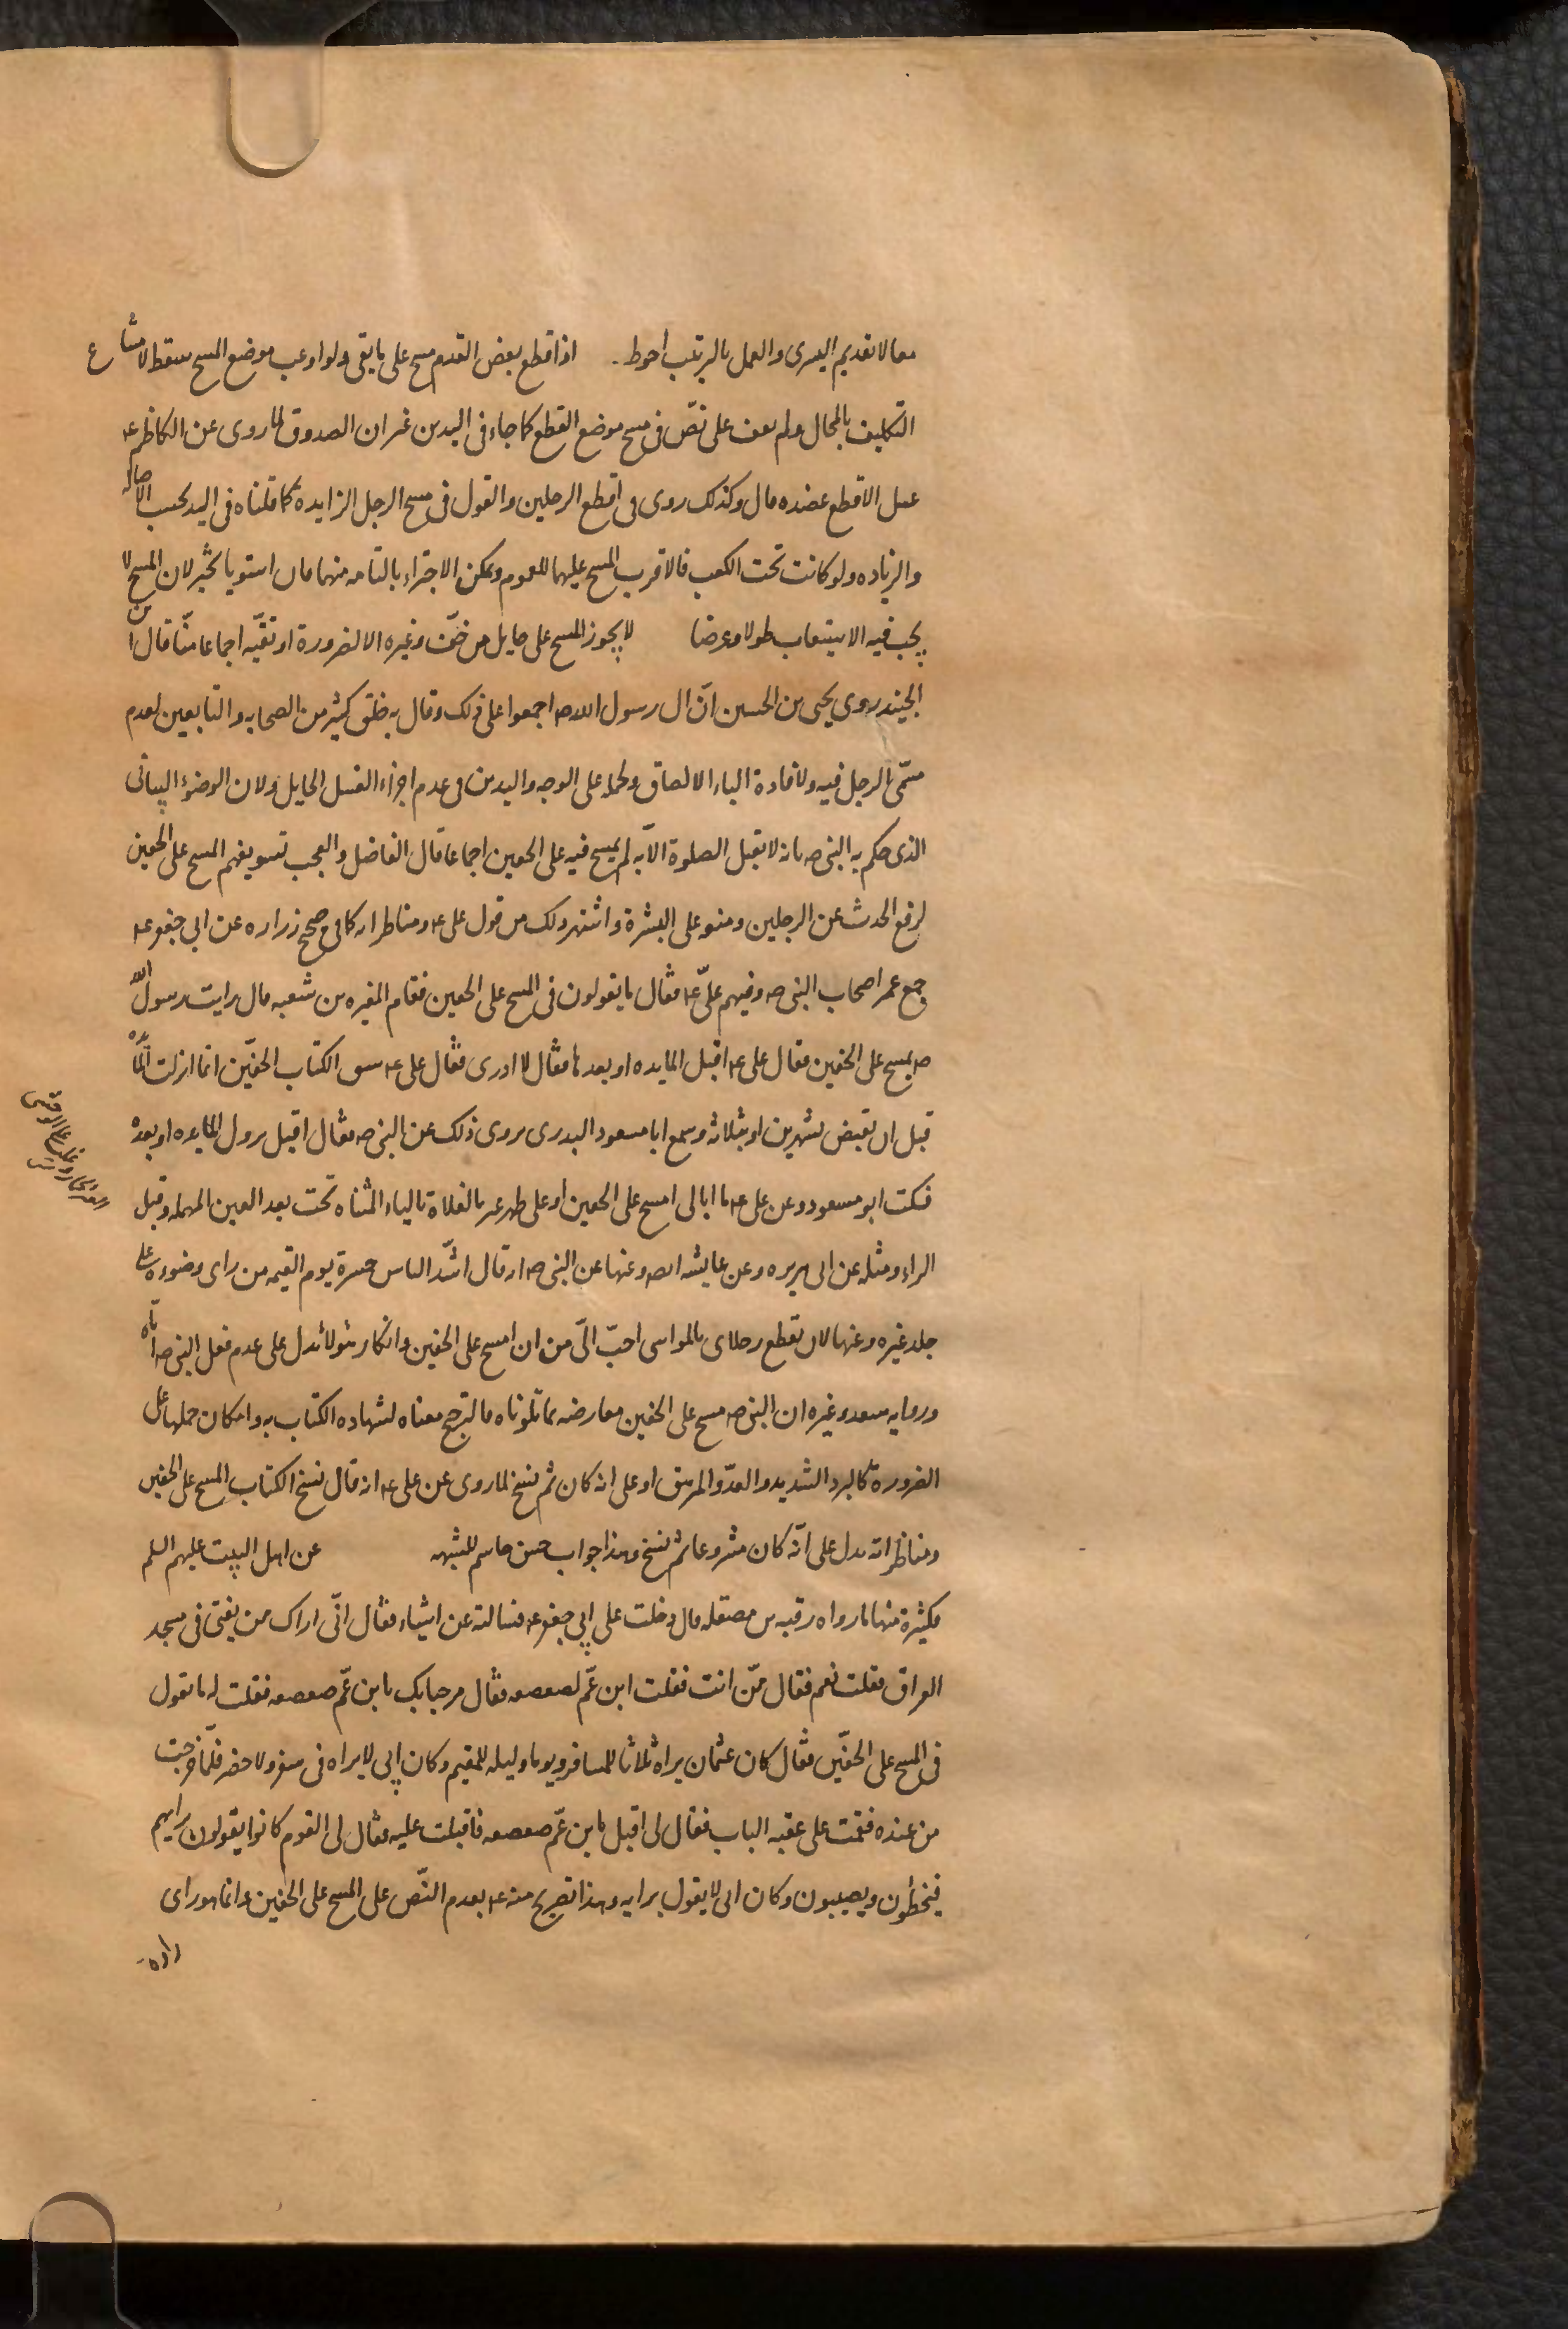 معا لا تقديم اليسرى والعمل بالترتيب احوط . اذا قطع بعض القدم مسح على ما بقى ولو اوعب موضع المسح سقط لامتناع
التكليف بالمحال ولم نقف على نصّ فى مسح موضع القطع كما جاء فى اليدين غير ان الصدوق لما روى عن الكاظم ع
غسل الاقطع عضده قال وكذلك روى فى اقطع الرجلين والقول فى مسح الرجل الزايدة كما قلناه فى اليد بحسب الاصاله
والزياده ولو كانت تحت الكعب فالاقرب المسح عليهما للعموم ويمكن الاجتزاء بالتامه منهما فان استويا تخير لان المسح لا
يجب فيه الاستيعاب طولا وعرضا لا يجوز المسح على حايل من خفّ وغيره الا لضرورة او تقيّه اجماعا منّا قال ابن
الجنيد روى يحيى بن الحسين انّ ال رسول الله صه اجمعوا على ذلك وقال به خلق كثير من الصحابه والتابعين لعدم
مسمّى الرجل فيه ولافادة الباء الالصاق وحملا على الوجه واليدين فى عدم اجزاء الغسل الحايل ولان الوضوء البيانى
الذى حكم به النبى صه بانه لا تقبل الصلوة الّا به لم يمسح فيه على الخفين اجماعا قال الفاضل والعجب تسويغهم المسح على الخفين
لرفع الحدث عن الرجلين ومنعو على البشرة واشتهر ذلك من قول على ع ومناظراته كما فى صحيح زراره عن ابى جعفر ع
جمع عمر اصحاب النبى صه وفيهم علىّ ع فقال ما تقولون فى المسح على الخفين فقام المغيره بن شعبه قال رايت رسول الله
صه يمسح على الخفين فقال على ع اقبل المايده او بعدها فقال لا ادرى فقال على ع سبق الكتاب الخفّين انما انزلت المايده
قبل ان يقبض بشهرين او بثلاثه وسمع ابا مسعود البدرى يروى ذلك عن النبى صه فقال اقبل نزول المايده او بعده
فسكت ابو مسعود وعن على ع ما ابالى امسح على الخفين او على ظهر عير بالفلاة بالياء المثناه تحت بعد العين المهمله وقبل
الراء ومثله عن ابى هريره وعن عايشه ايضا وعنها عن النبى صه انه قال اشدّ الناس حسرة يوم القيمه من راى وضوءه على
جلد غيره وعنها لان تقطع رجلاى بالمواسى احبّ الىّ من ان امسح على الخفين وانكار هؤلاء يدل على عدم فعل النبى صه ايّاه
وروايه سعد وغيره ان النبى صه مسح على الخفين معارضه بما تلوناه فالترجيح معناه لشهاده الكتاب به وامكان حملها على
الضرورة كالبرد الشديد والعدوّ المرهق او على انه كان ثم نسخ لما روى عن على ع انه قال نسخ الكتاب المسح على الخفين
ومناظراته تدل على انّه كان مشروعا ثم نسخ وهذا جواب حسن حاسم للشبهه عن اهل البيت عليهم السلم
كثيرة منها ما رواه رقبه بن مصقله قال دخلت على ابى جعفر ع فسالته عن اشياء فقال انّى اراك ممن يفتى فى مسجد
العراق فقلت نعم فقال ممّن انت فقلت ابن عمّ لصعصعه فقال مرحبا بك يا بن عمّ صعصعه فقلت له ما تقول
فى المسح على الخفّين فقال كان عثمان يراه ثلاثا للمسافر ويوما وليله للمقيم وكان ابى لا يراه فى سفر ولا حضر فلمّا خرجت
من عنده فقمت على عقبه الباب فقال لى اقبل يا بن عمّ صعصعه فاقبلت عليه فقال لى القوم كانوا يقولون برايهم
فيخطئون ويصيبون وكان ابى لا يقول برايه وهذا تصريح منه ع بعدم النّص على المسح على الخفين وانما هو راى
راوه